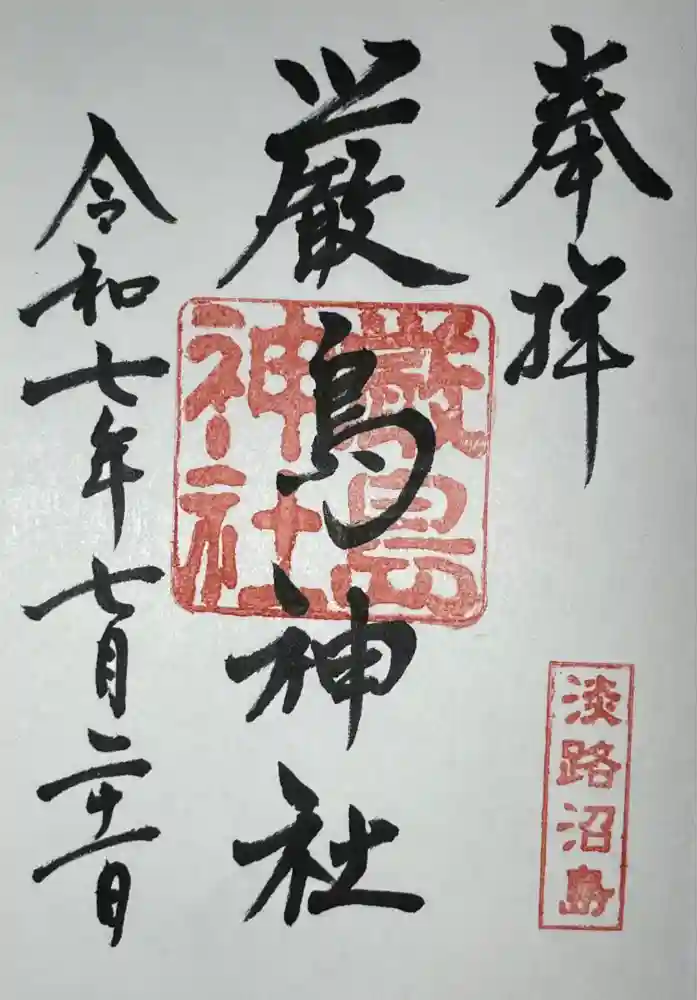 奉拝
淡路沼島
厳島神社
厳島
神社
令和七年七月二十一日